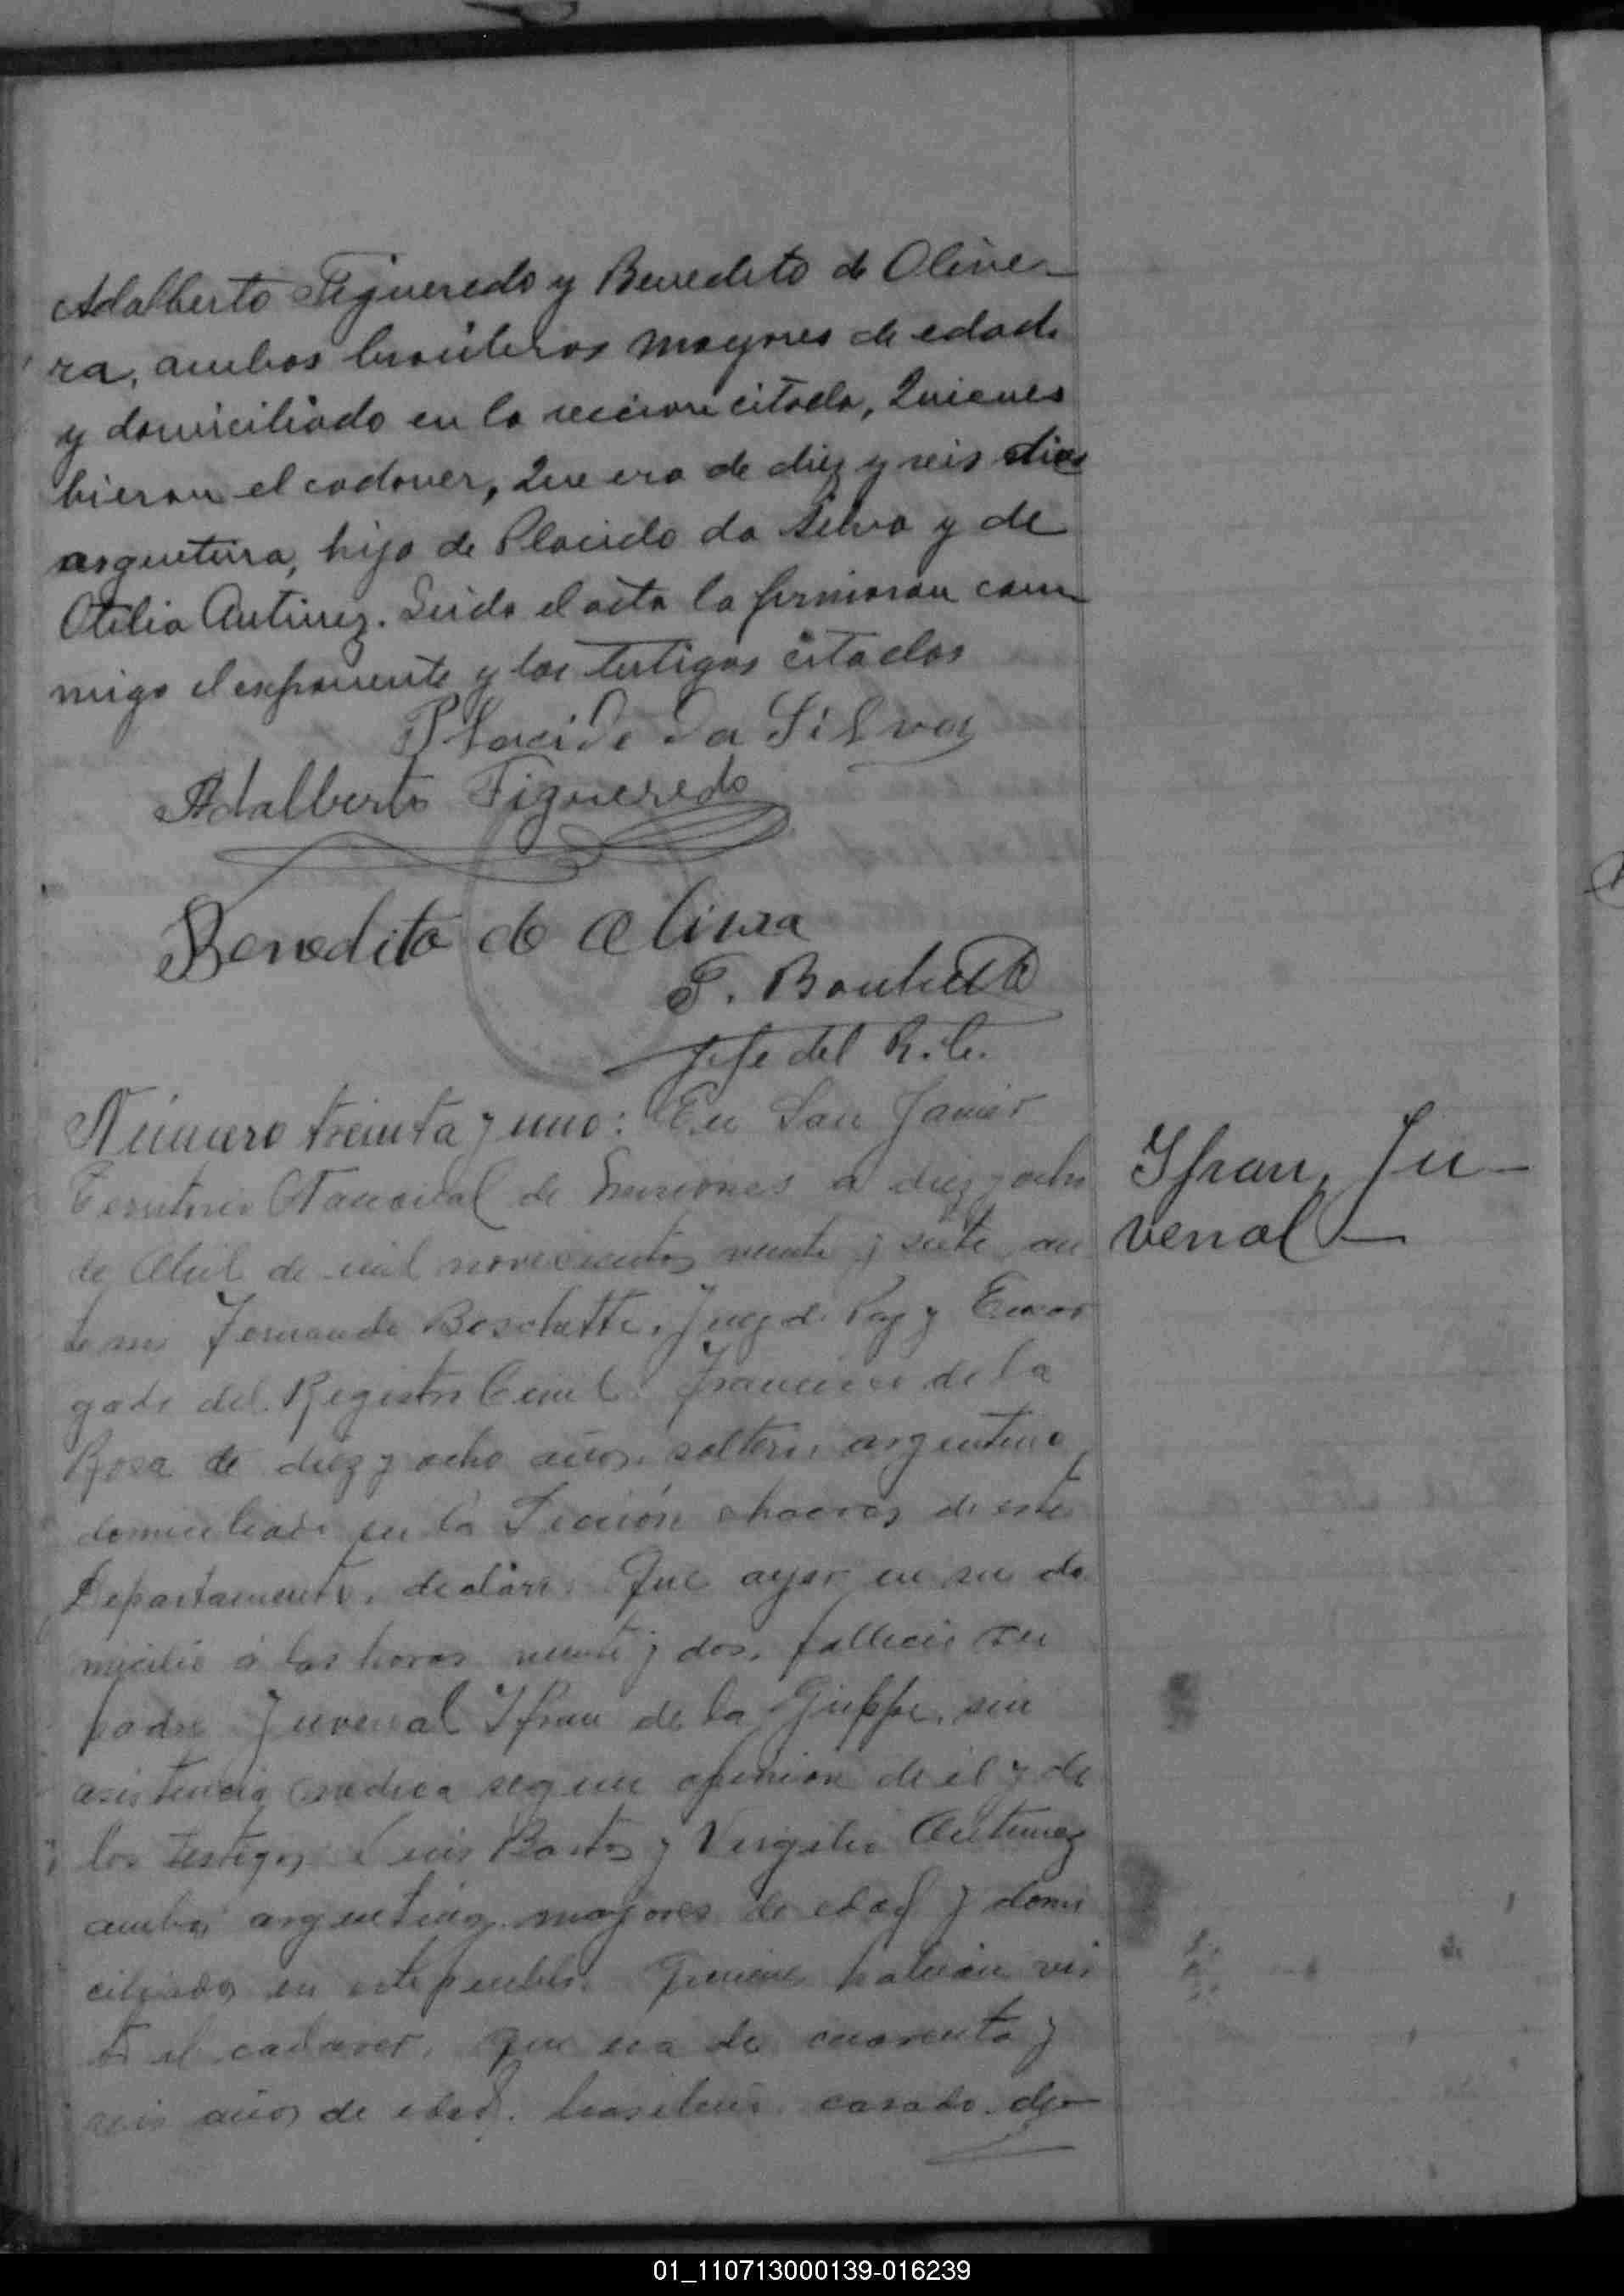 Adalberto Figueredo y Benedito de Olive-
ra, ambos brasileros mayores de edad
y domiciliado en la seccion citada, Quienes
bieron el cadaver, Que era de diez y seis dias
argentina, hija de Placido da Silva y de
Otilia Antunez. Leida el acta la firmaron con-
migo el exponente y los testigos citados
Placido da Silva
Adalberto Figueredo
Benedito de Olivera
F. Boschetti
Jefe del R. C.
Número treinta y uno: En San Javier
Territorio Nacional de Misiones a diez y ocho
de Abril de mil novecientos veinte y siete, an
te mi Fernando Boschetti, Juez de Paz y Encar
gado del Registro Civil. Francisco de la
Rosa de diez y ocho años, soltero, argentino,
domiciliado en la Sección chacras de este
Departamento, declaró: Que ayer en su do
micilio á las horas veinte y dos, falleció su
padre Juvenal Ifran de la Grippe, sin
asistencia medica segun opinion de él y de
los testigos Luis Bastos y Virgilio Antunez
ambos argentinos, mayores de edad y domi
ciliados en este pueblo. Quienes habian vis
to el cadaver, que era de cuarenta y
seis años de edad, brasilero, casado,
Ifran, Ju-
venal
01_110713000139-016239